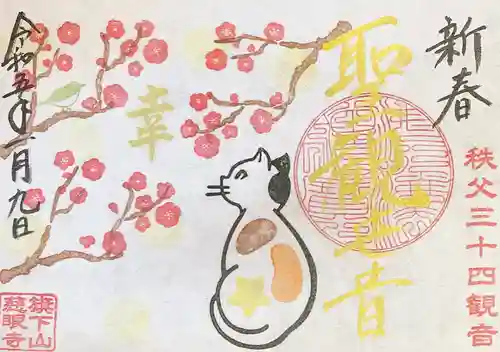 新春
秩父三十四観音
聖観世音
幸
令和五年一月九日
旗下山
慈眼寺